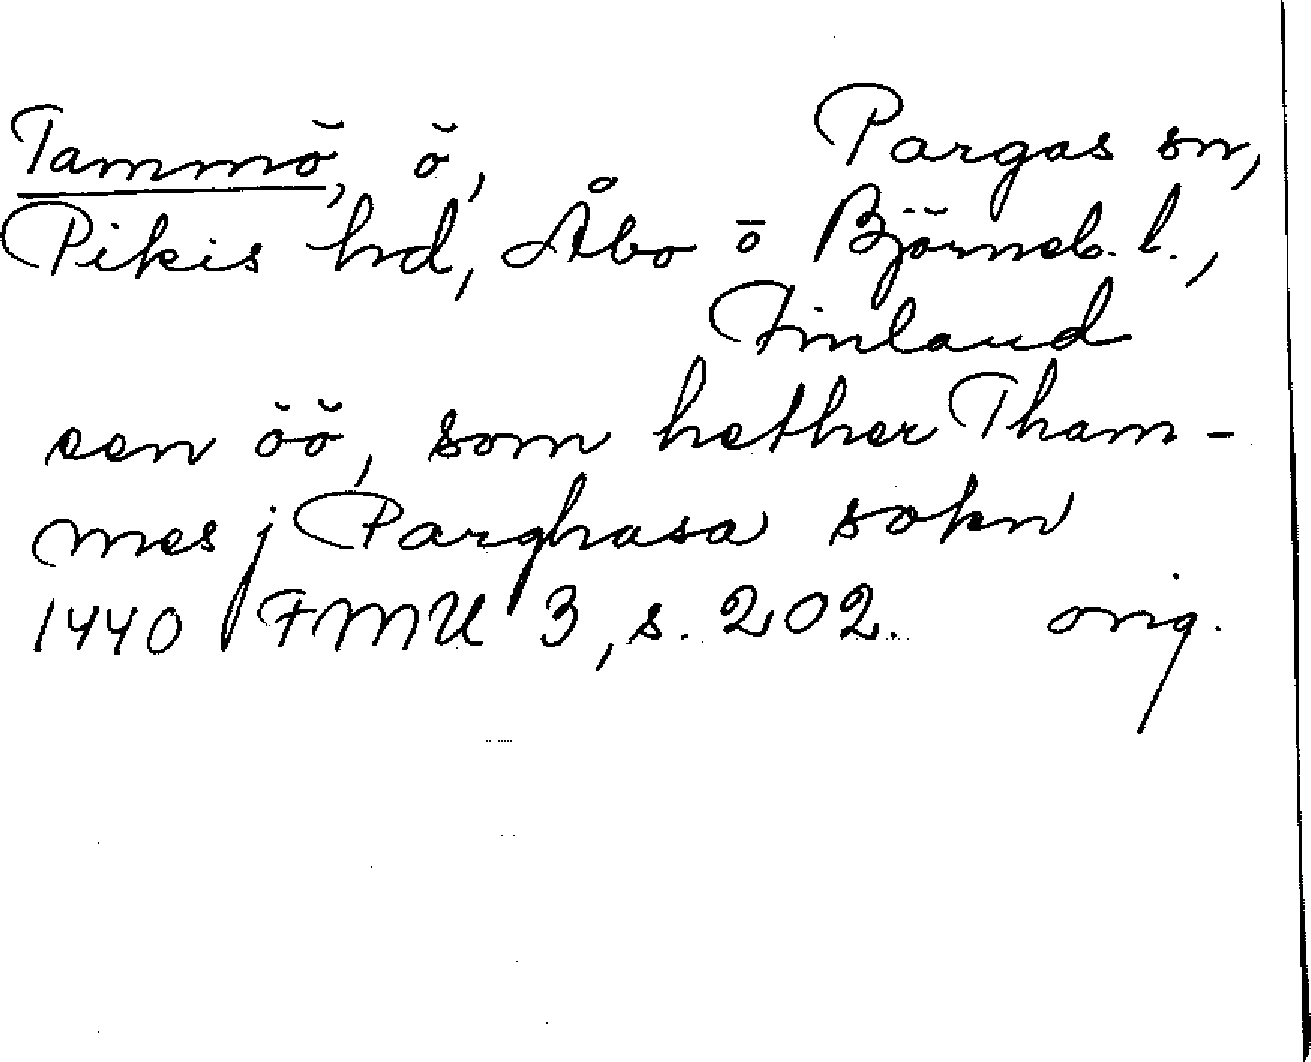 Tammö, ö, Pargas sn,
Pikis hd, Åbo o Björneb. l.,
Finland
een öö, som hether Tham-
mes j Parghasa sokn
1440 FMU 3, s. 202. orig.